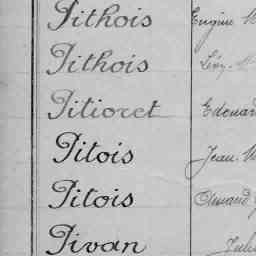 Pithois Eugène
Pithois
Pitioret Edouard
Pitois Jean
Pitois Armand
Pivan